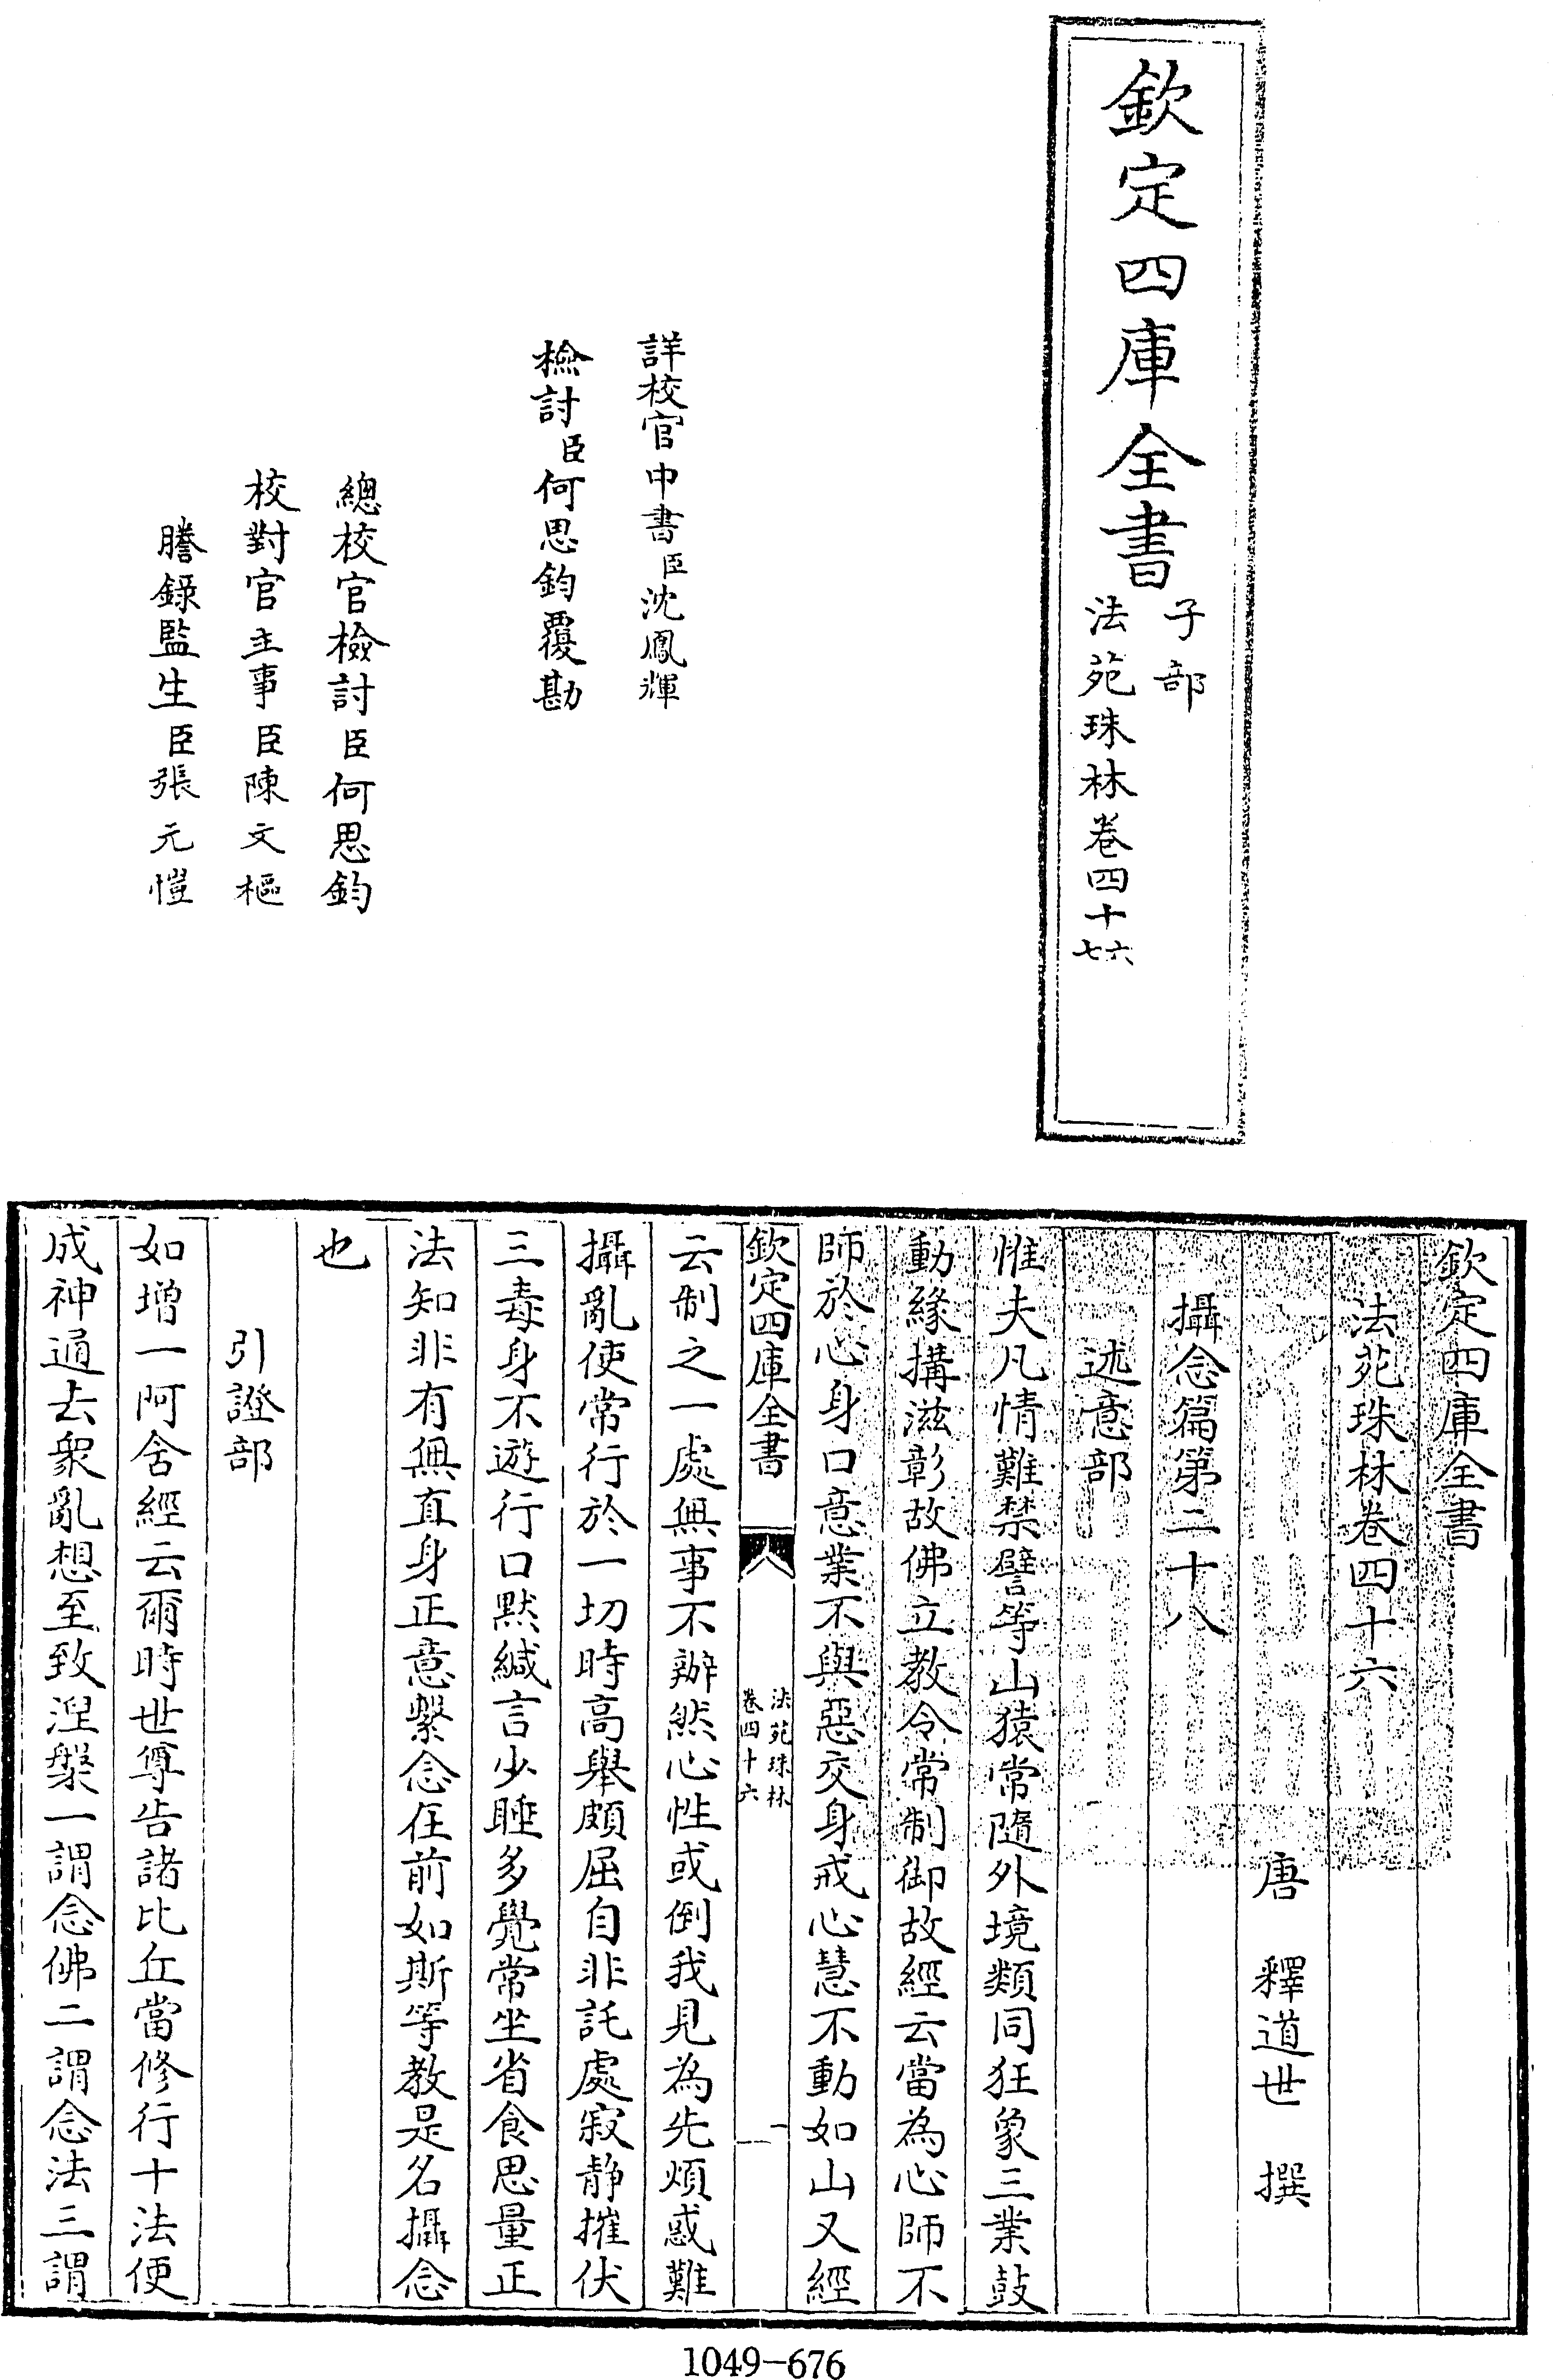 欽定四庫全書
子部
法苑珠林卷四十六
七
詳校官中書臣沈鳳輝
檢討臣何思鈞覆勘
總校官檢討臣何思鈞
校對官主事臣陳文樞
謄錄監生臣張元愷
欽定四庫全書
法苑珠林卷四十六
唐 釋道世 撰
攝念篇第二十八
述意部
惟夫凡情難禁譬等山猿常隨外境類同狂象三業鼓
動緣搆滋彰故佛立教令常制御故經云當為心師不
師於心身口意業不與惡交身戒心慧不動如山又經
欽定四庫全書
法苑珠林
卷四十六
一
云制之一處無事不辦然心性或倒我見為先煩惑難
攝亂使常行於一切時高舉頗屈自非託處寂靜摧伏
三毒身不遊行口默緘言少睡多覺常坐省食思量正
法知非有無直身正意繫念在前如斯等教是名攝念
也
引證部
如增一阿含經云爾時世尊告諸比丘當修行十法便
成神通去衆亂想至致涅槃一謂念佛二謂念法三謂
1049-676